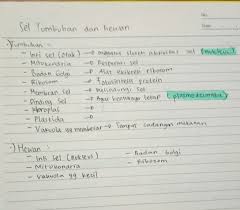 No.
Date
Sel Tumbuhan dan hewan
•) Tumbuhan :
- Inti sel (otak) → mengatur seluruh aktivitas sel (nukleus)
- Mitokondria → Respirasi sel
- Badan Golgi → Alat ekskresi ribosom
- Ribosom → protein
- Membran sel → Melindungi sel
- Dinding sel → Agar bentuknya tetap (plasmodesmata)
- Kloroplas →
- Plastida →
- Vakuola yg membesar → Tempat cadangan makanan
•) Hewan :
- Inti sel (Nukleus) - Badan Golgi
- Mitokondria - Ribosom
- Vakuola yg kecil